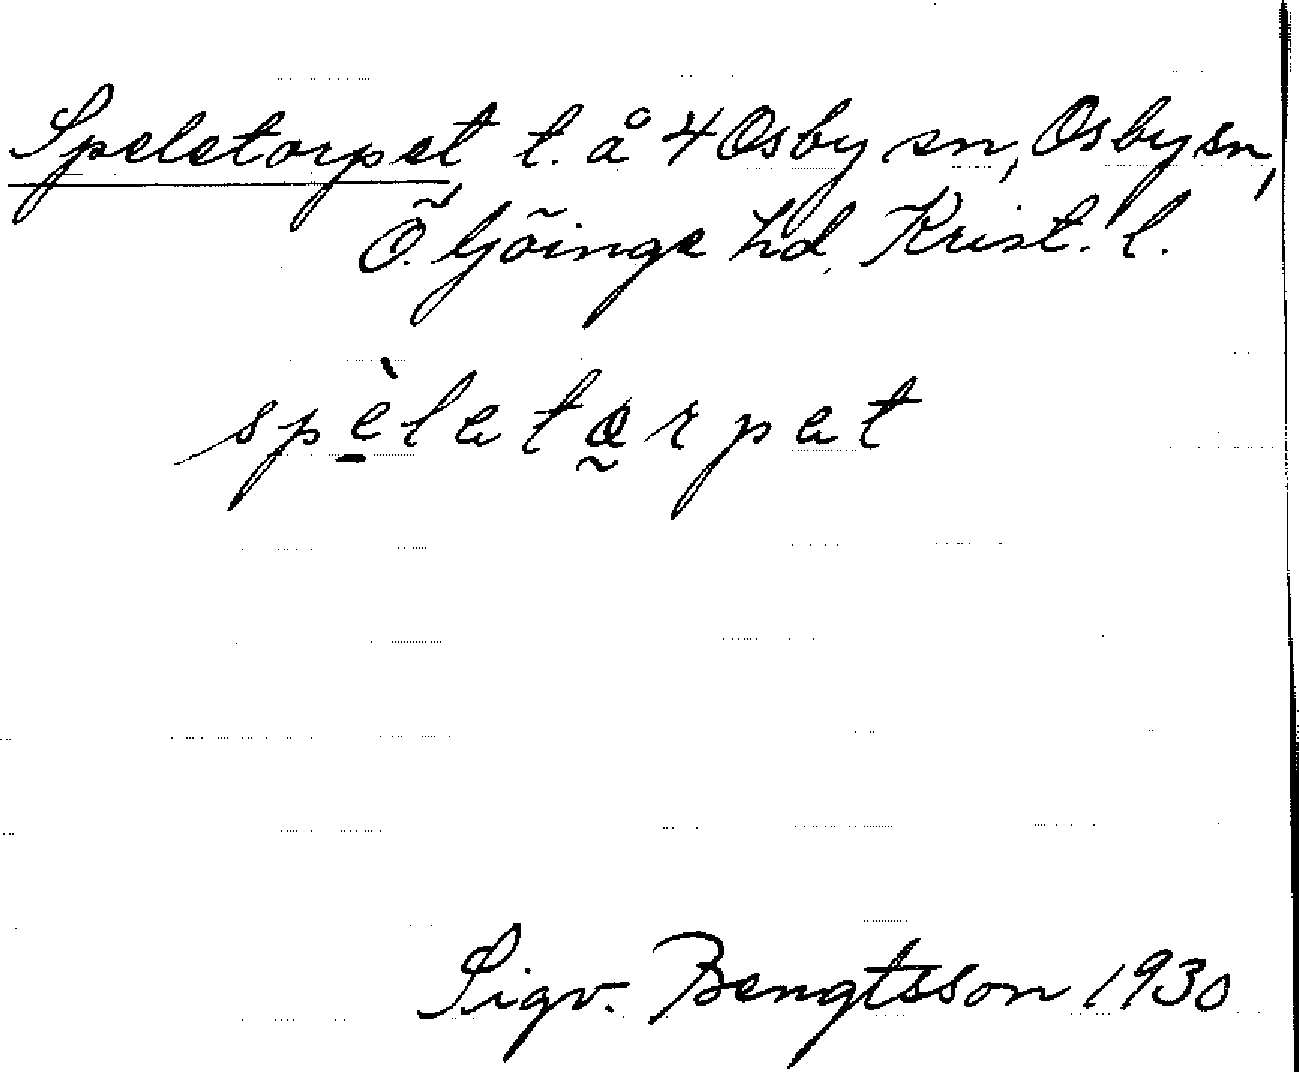 Speletorpet l. å 4 Osby sn, Osby sn,
Ö. Göinge hd, Krist. l.
spèletorpet
Sigv. Bengtsson 1930